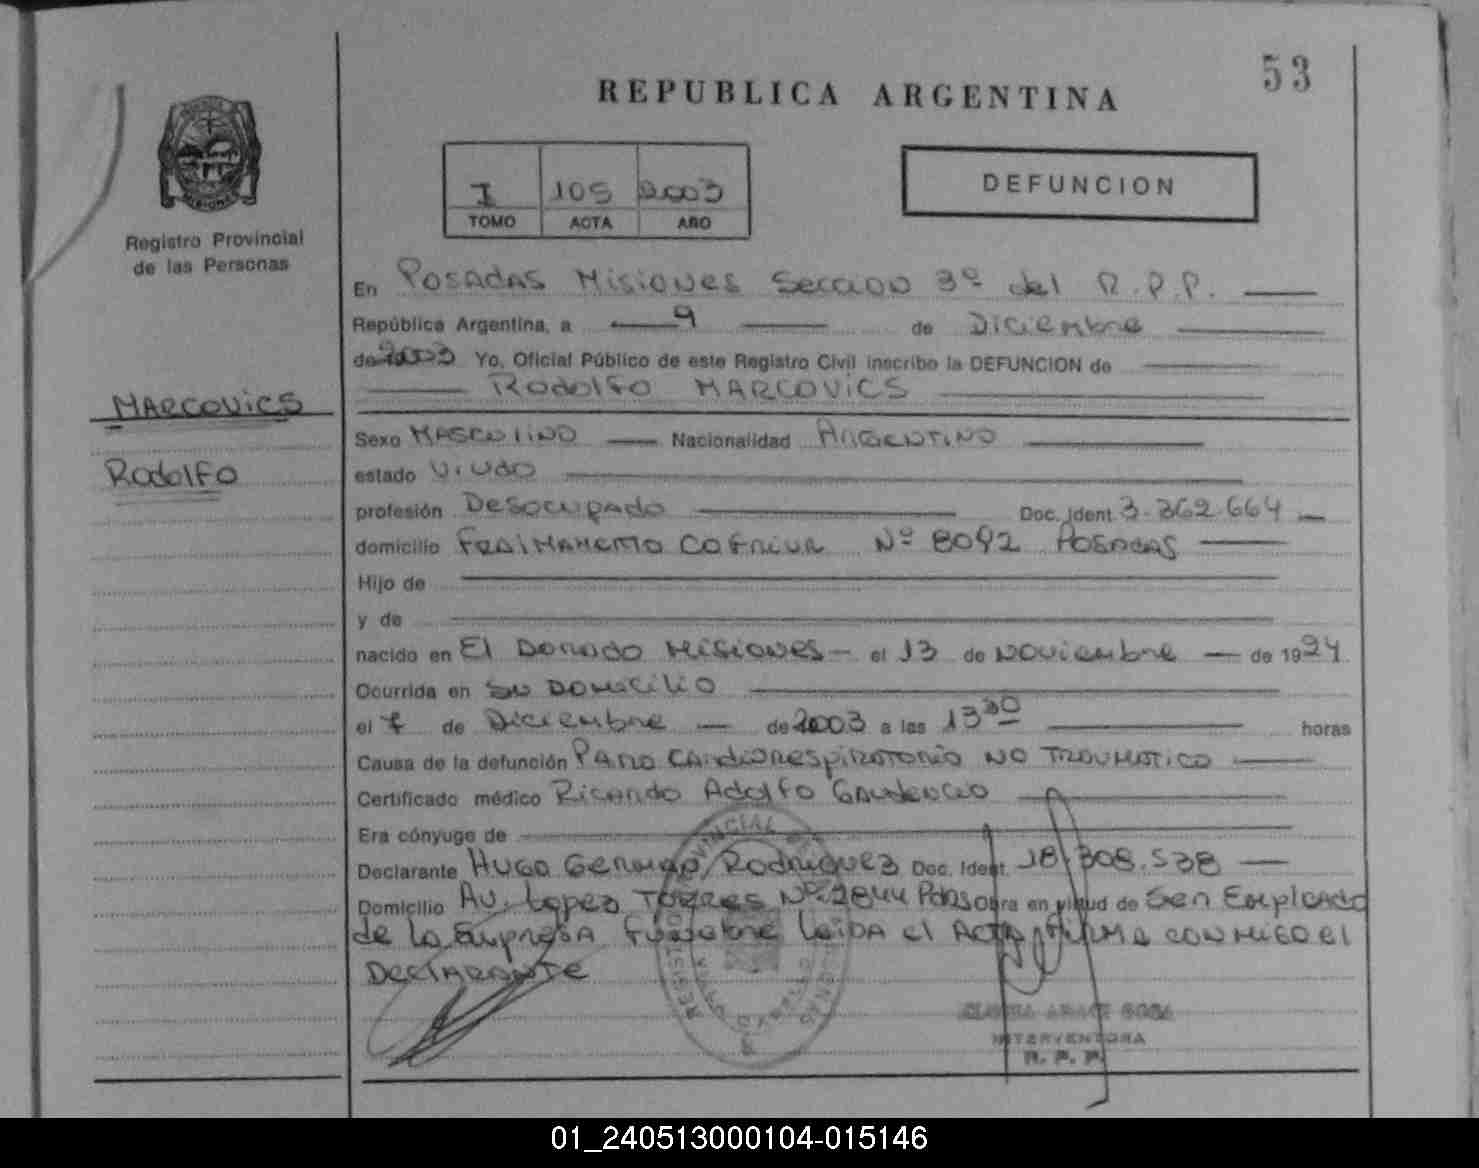 53
REPUBLICA ARGENTINA
MISIONES
I 105 2003
TOMO ACTA AÑO
DEFUNCION
Registro Provincial
de las Personas
En POSADAS Misiones Seccion 3º del R.P.P.
República Argentina, a 9 de Diciembre
de 2003 Yo, Oficial Público de este Registro Civil inscribo la DEFUNCION de
Rodolfo MARCOVICS
MARCOVICS
Rodolfo
Sexo MASCULINO Nacionalidad ARGENTINO
estado Viudo
profesión Desocupado Doc. Ident. 3.362.664
domicilio Nº 8092 POSADAS
Hijo de
y de
nacido en El Dorado Misiones - el 13 de Noviembre de 1924
Ocurrida en SU DOMICILIO
el 7 de Diciembre de 2003 a las 13 30 horas
Causa de la defunción PARO CARDIORESPIRATORIO NO TRAUMATICO
Certificado médico Ricardo Adolfo GAUDENCIO
Era cónyuge de
Declarante HUGO Gerardo Rodriguez Doc. Ident. 18.308.538
Domicilio AV. Lopez TORRES Nº 2844 Pdas Obra en virtud de Ser Empleado
de la Empresa Funebre Leida el ACTA FIRMA CONMIGO el
DECLARANTE
INTERVENTORA
R. P. P.
01_240513000104-015146